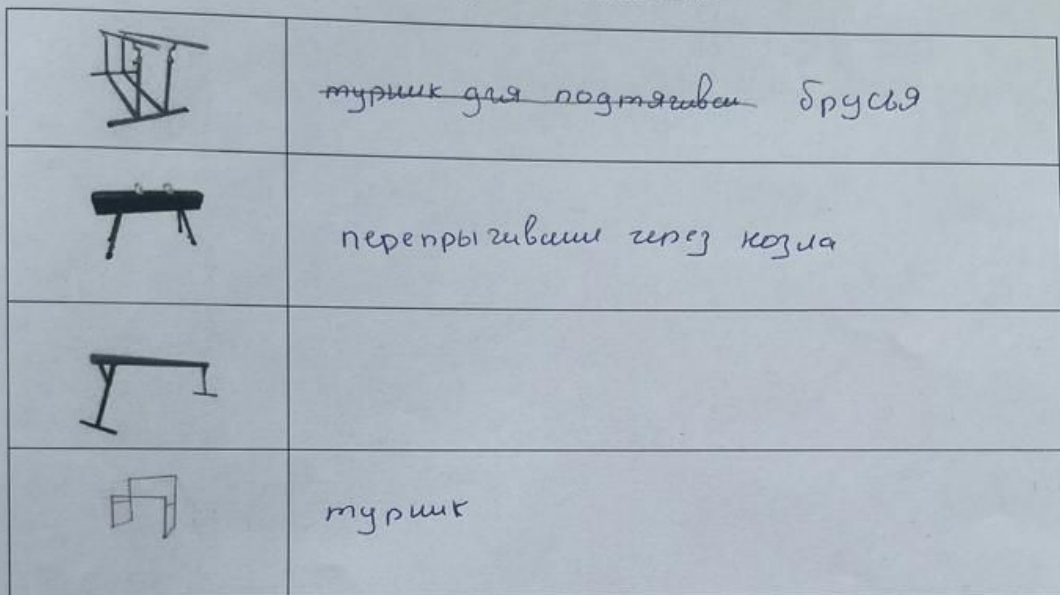 турник для подтягиван брусья
перепрыгивание через козла
турник